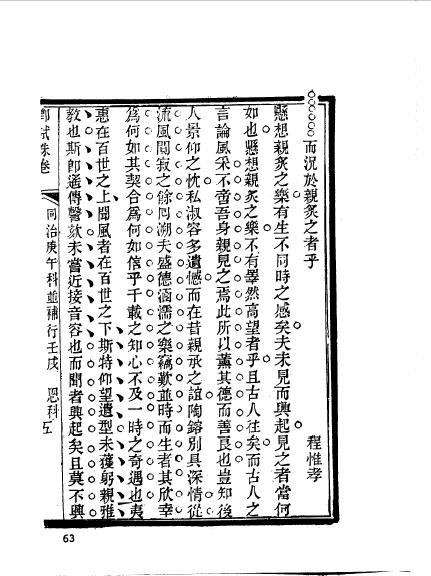 而況於親炙之者乎
程惟孝
懸想親炙之樂有生不同時之感矣夫未見而興起見之者當何
如也懸想親炙之樂不有睪然高望者乎且古人往矣而古人之
言論風采不啻吾身親見之焉此所以薰其德而善良也豈知後
人景仰之忱私淑容多遺憾而在昔親承之誼陶鎔別具深情從
流風闃寂之餘囘溯夫盛德涵濡之樂竊歎並時而生者其欣幸
爲何如其契合爲何如信乎千載之知心不及一時之奇遇也夷
惠在百世之上聞風者在百世之下斯特仰望遺型未獲躬親雅
教也斯卽遙傳謦欬未嘗近接音容也而聞者興起矣且莫不興
鄉試硃卷
同治庚午科並補行壬戌
恩科
五
63